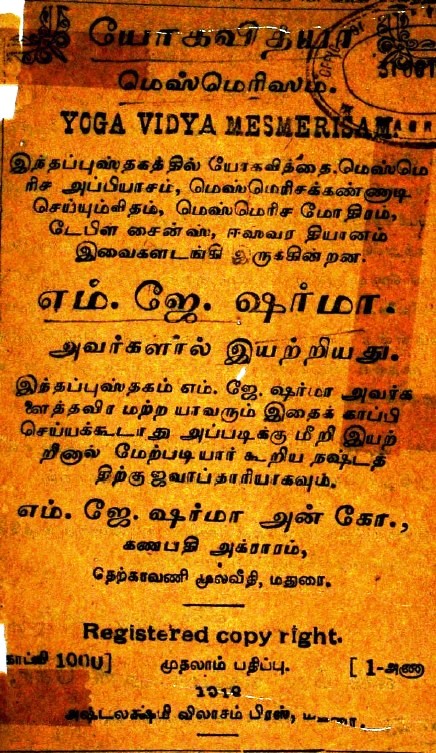 யோகவித்யா
மெஸ்மெரிஸம்.
YOGA VIDYA MESMERISAM
இந்தப்புஸ்தகத்தில் யோகவித்தை, மெஸ்மெ
ரிச அப்பியாசம், மெஸ்மெரிசக்கண்ணாடி
செய்யும்விதம், மெஸ்மெரிச மோதிரம்,
டேபிள் சைன்ஸ், ஈஸ்வர தியானம்
இவைகளடங்கி இருக்கின்றன.
எம். ஜே. ஷர்மா.
அவர்களால் இயற்றியது.
இந்தப்புஸ்தகம் எம். ஜே. ஷர்மா அவர்க
ளைத்தவிர மற்ற யாவரும் இதைக் காப்பி
செய்யக்கூடாது அப்படிக்கு மீறி இயற்
றினால் மேற்படியார் கூறிய நஷ்டத்
திற்கு ஜவாப்தாரியாகவும்.
எம். ஜே. ஷர்மா அன் கோ.,
கணபதி அக்ராரம்,
தெற்காவணி மூல்வீதி, மதுரை.
Registered copy right.
காப்பி 1000] முதலாம் பதிப்பு. [ 1-அணா
அஷ்டலக்ஷ்மி விலாசம் பிரஸ், மதுரை.